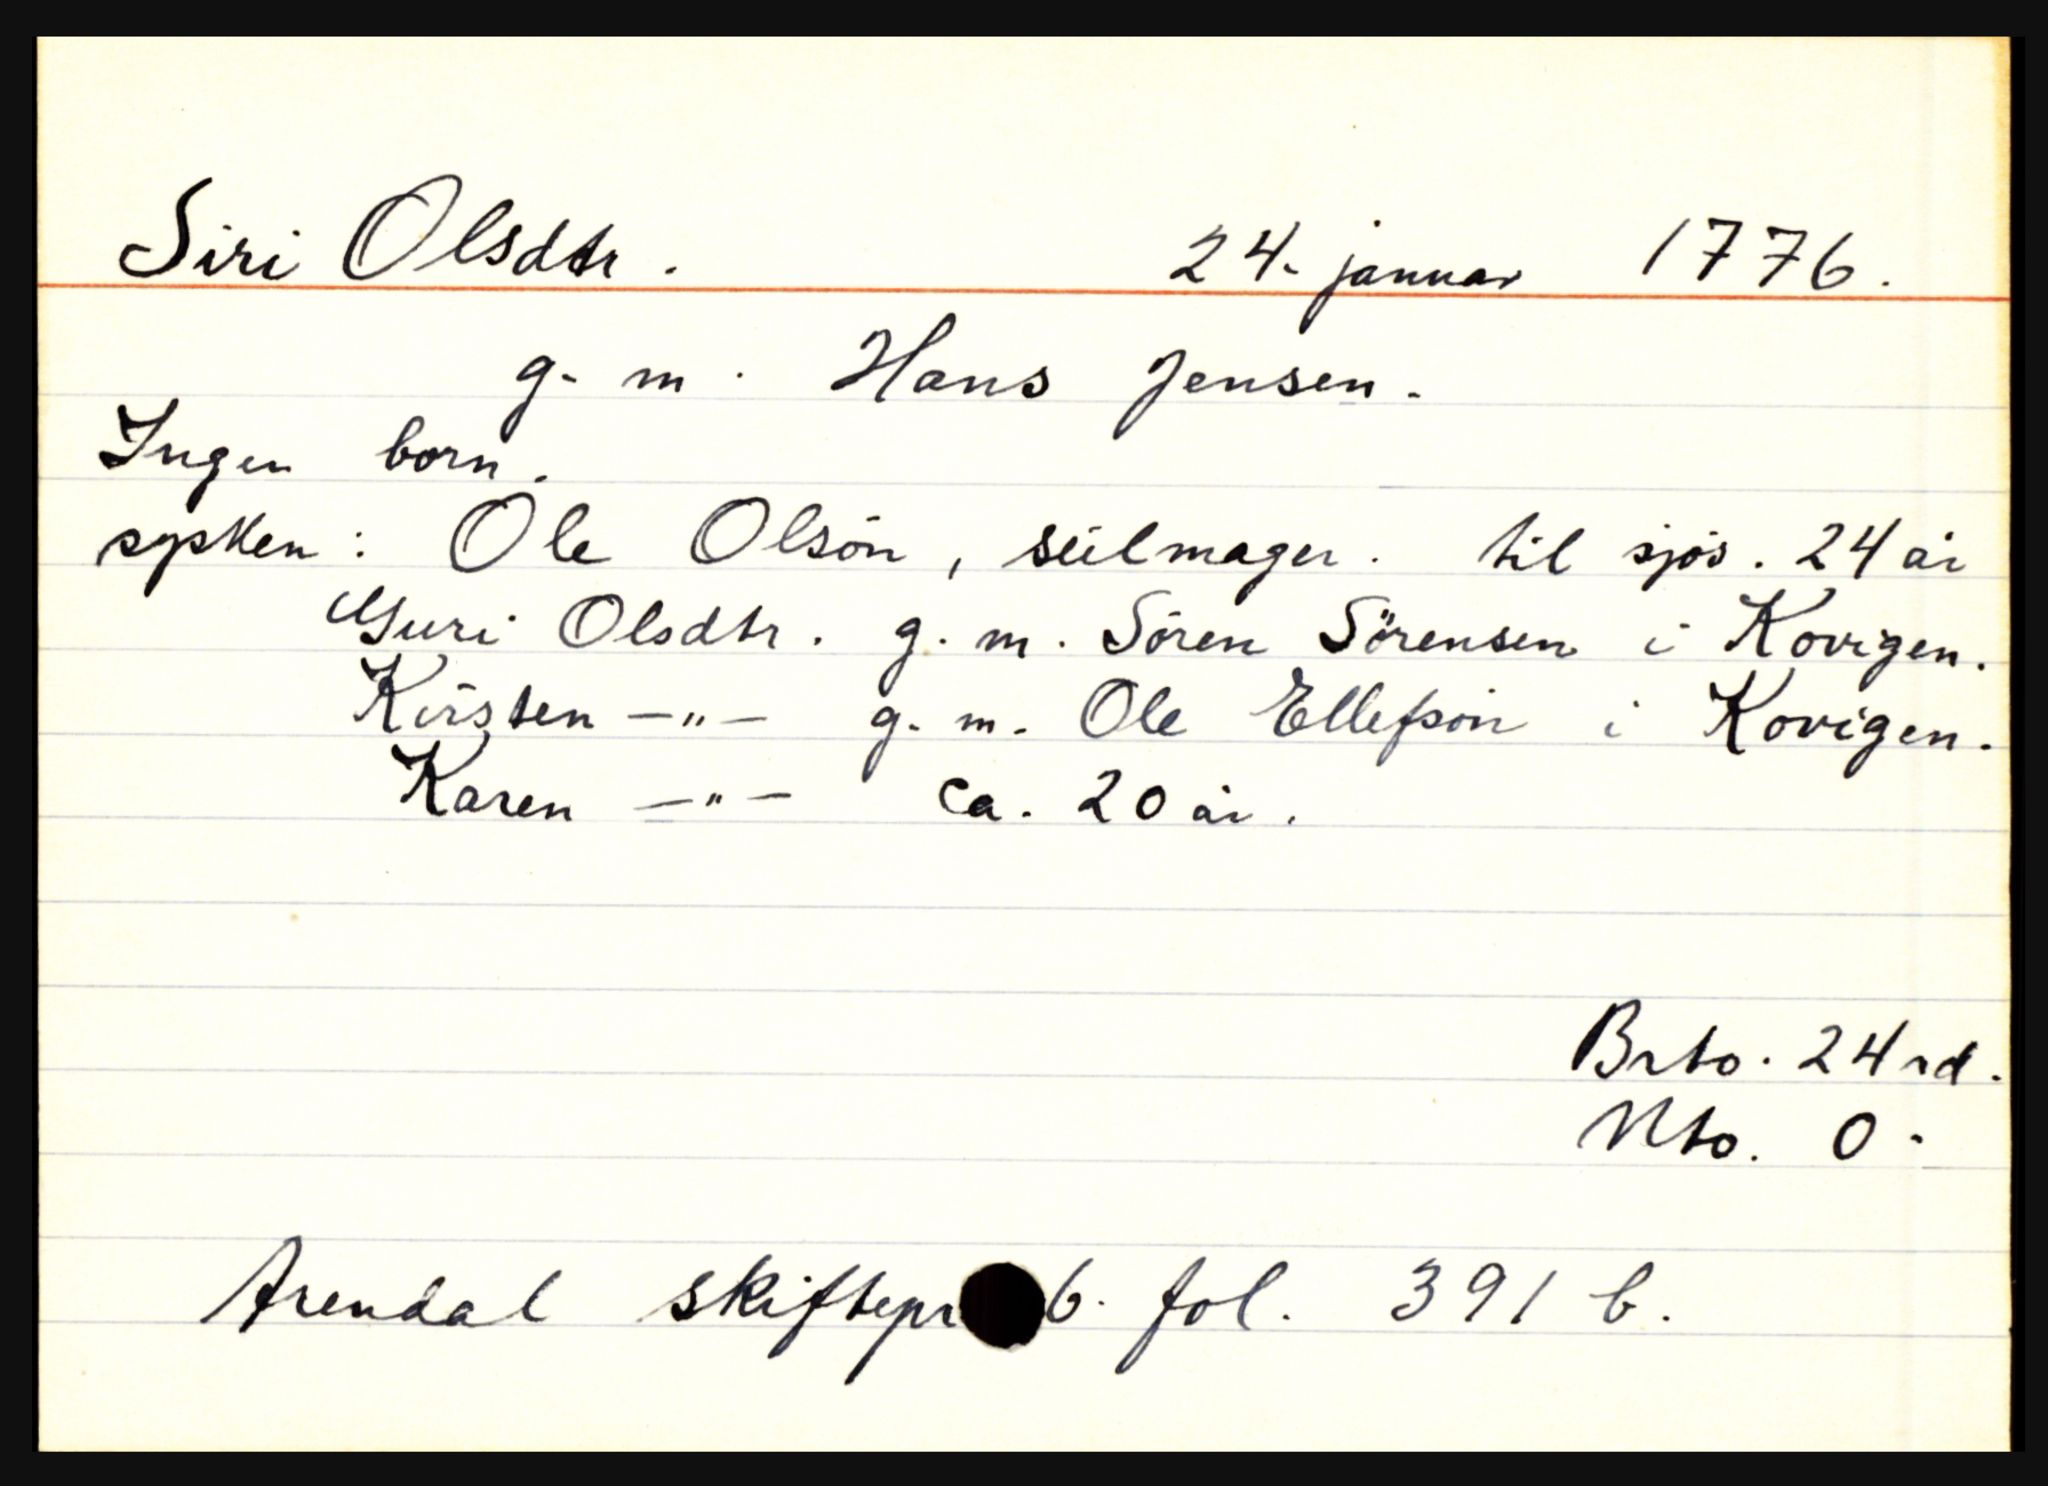 Siri Olsdtr. 24. januar 1776.
g. m. Hans Jensen.
Ingen born.
sysken: Ole Olsön, seilmager. til sjös. 24 år
Guri Olsdtr. g. m. Sören Sörensen i Kovigen.
Kirsten —"— g. m. Ole Ellefsön i Kovigen.
Karen —"— ca. 20 år.
Brto. 24 rd.
Nto. 0.
Arendal skiftepr 6. fol. 391 b.